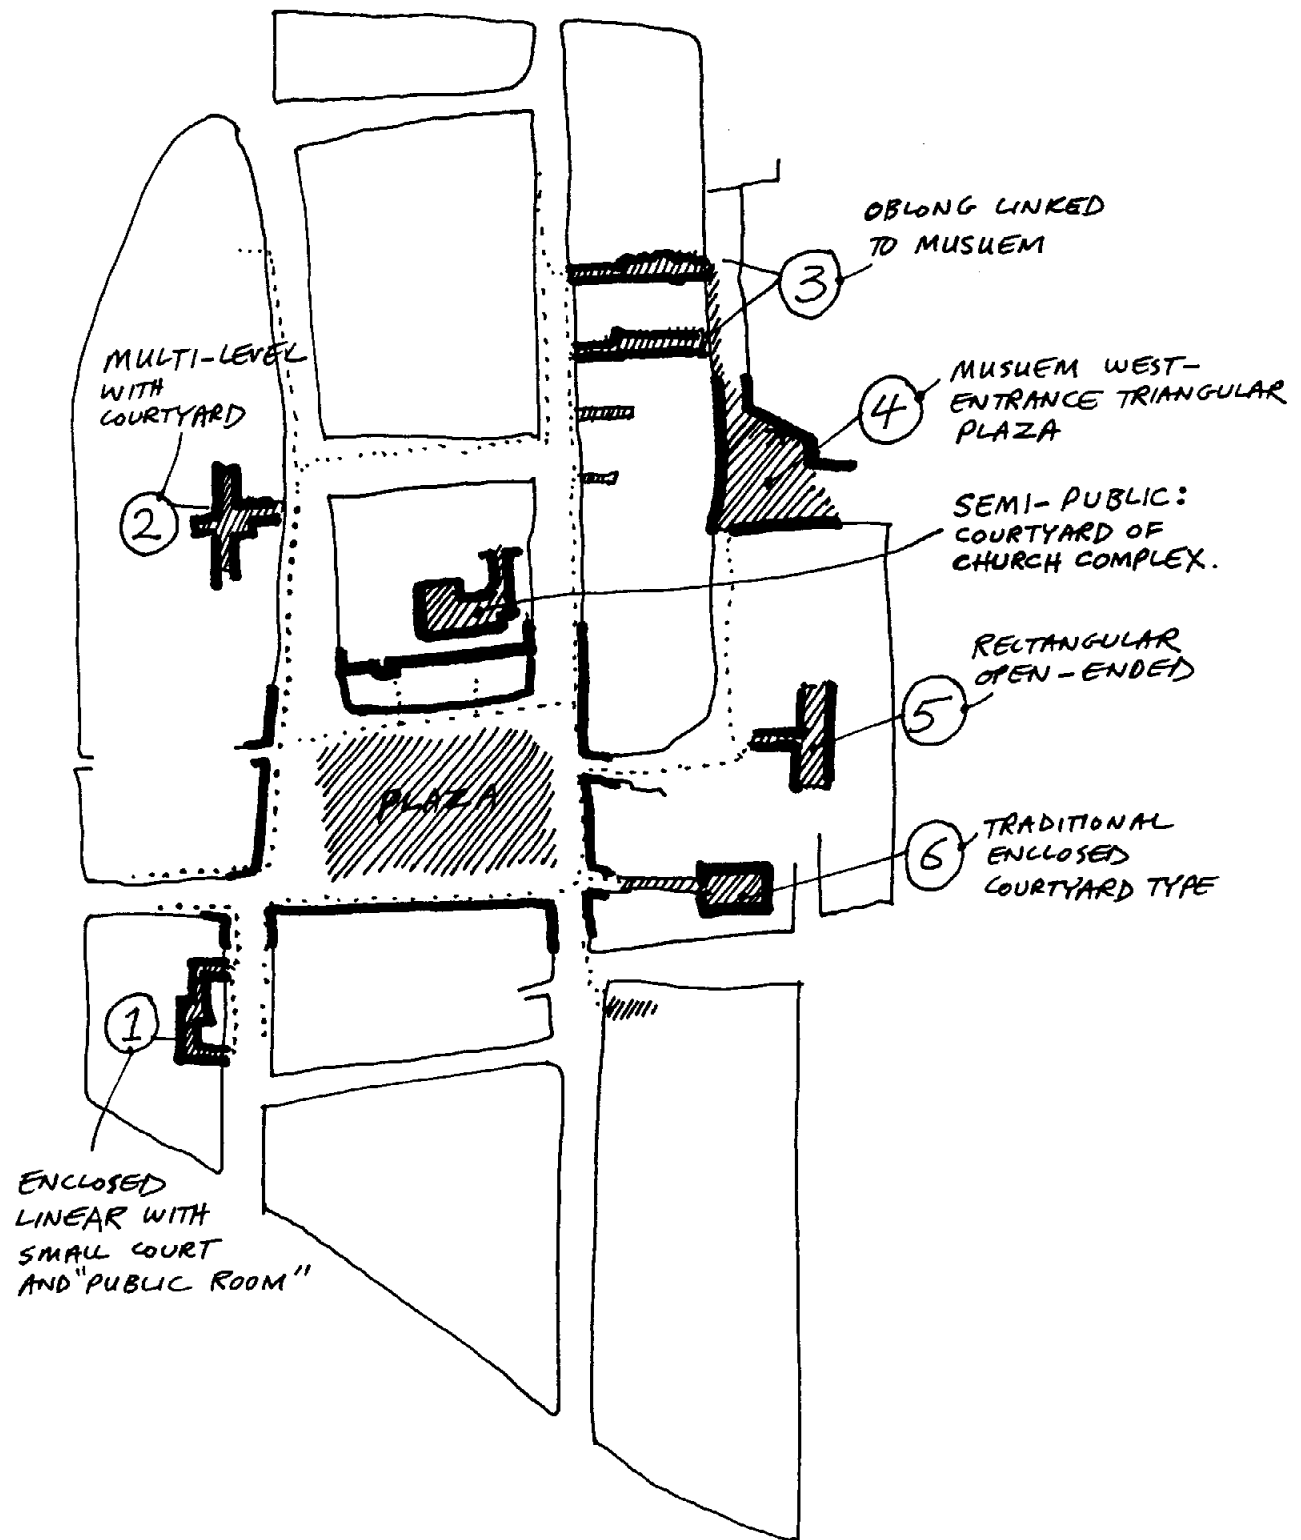 OBLONG LINKED
TO MUSUEM
3
MULTI-LEVEL
WITH
COURTYARD
2
MUSUEM WEST-
ENTRANCE TRIANGULAR
PLAZA
4
SEMI-PUBLIC:
COURTYARD OF
CHURCH COMPLEX.
RECTANGULAR
OPEN-ENDED
5
PLAZA
TRADITIONAL
ENCLOSED
COURTYARD TYPE
6
1
ENCLOSED
LINEAR WITH
SMALL COURT
AND "PUBLIC ROOM"